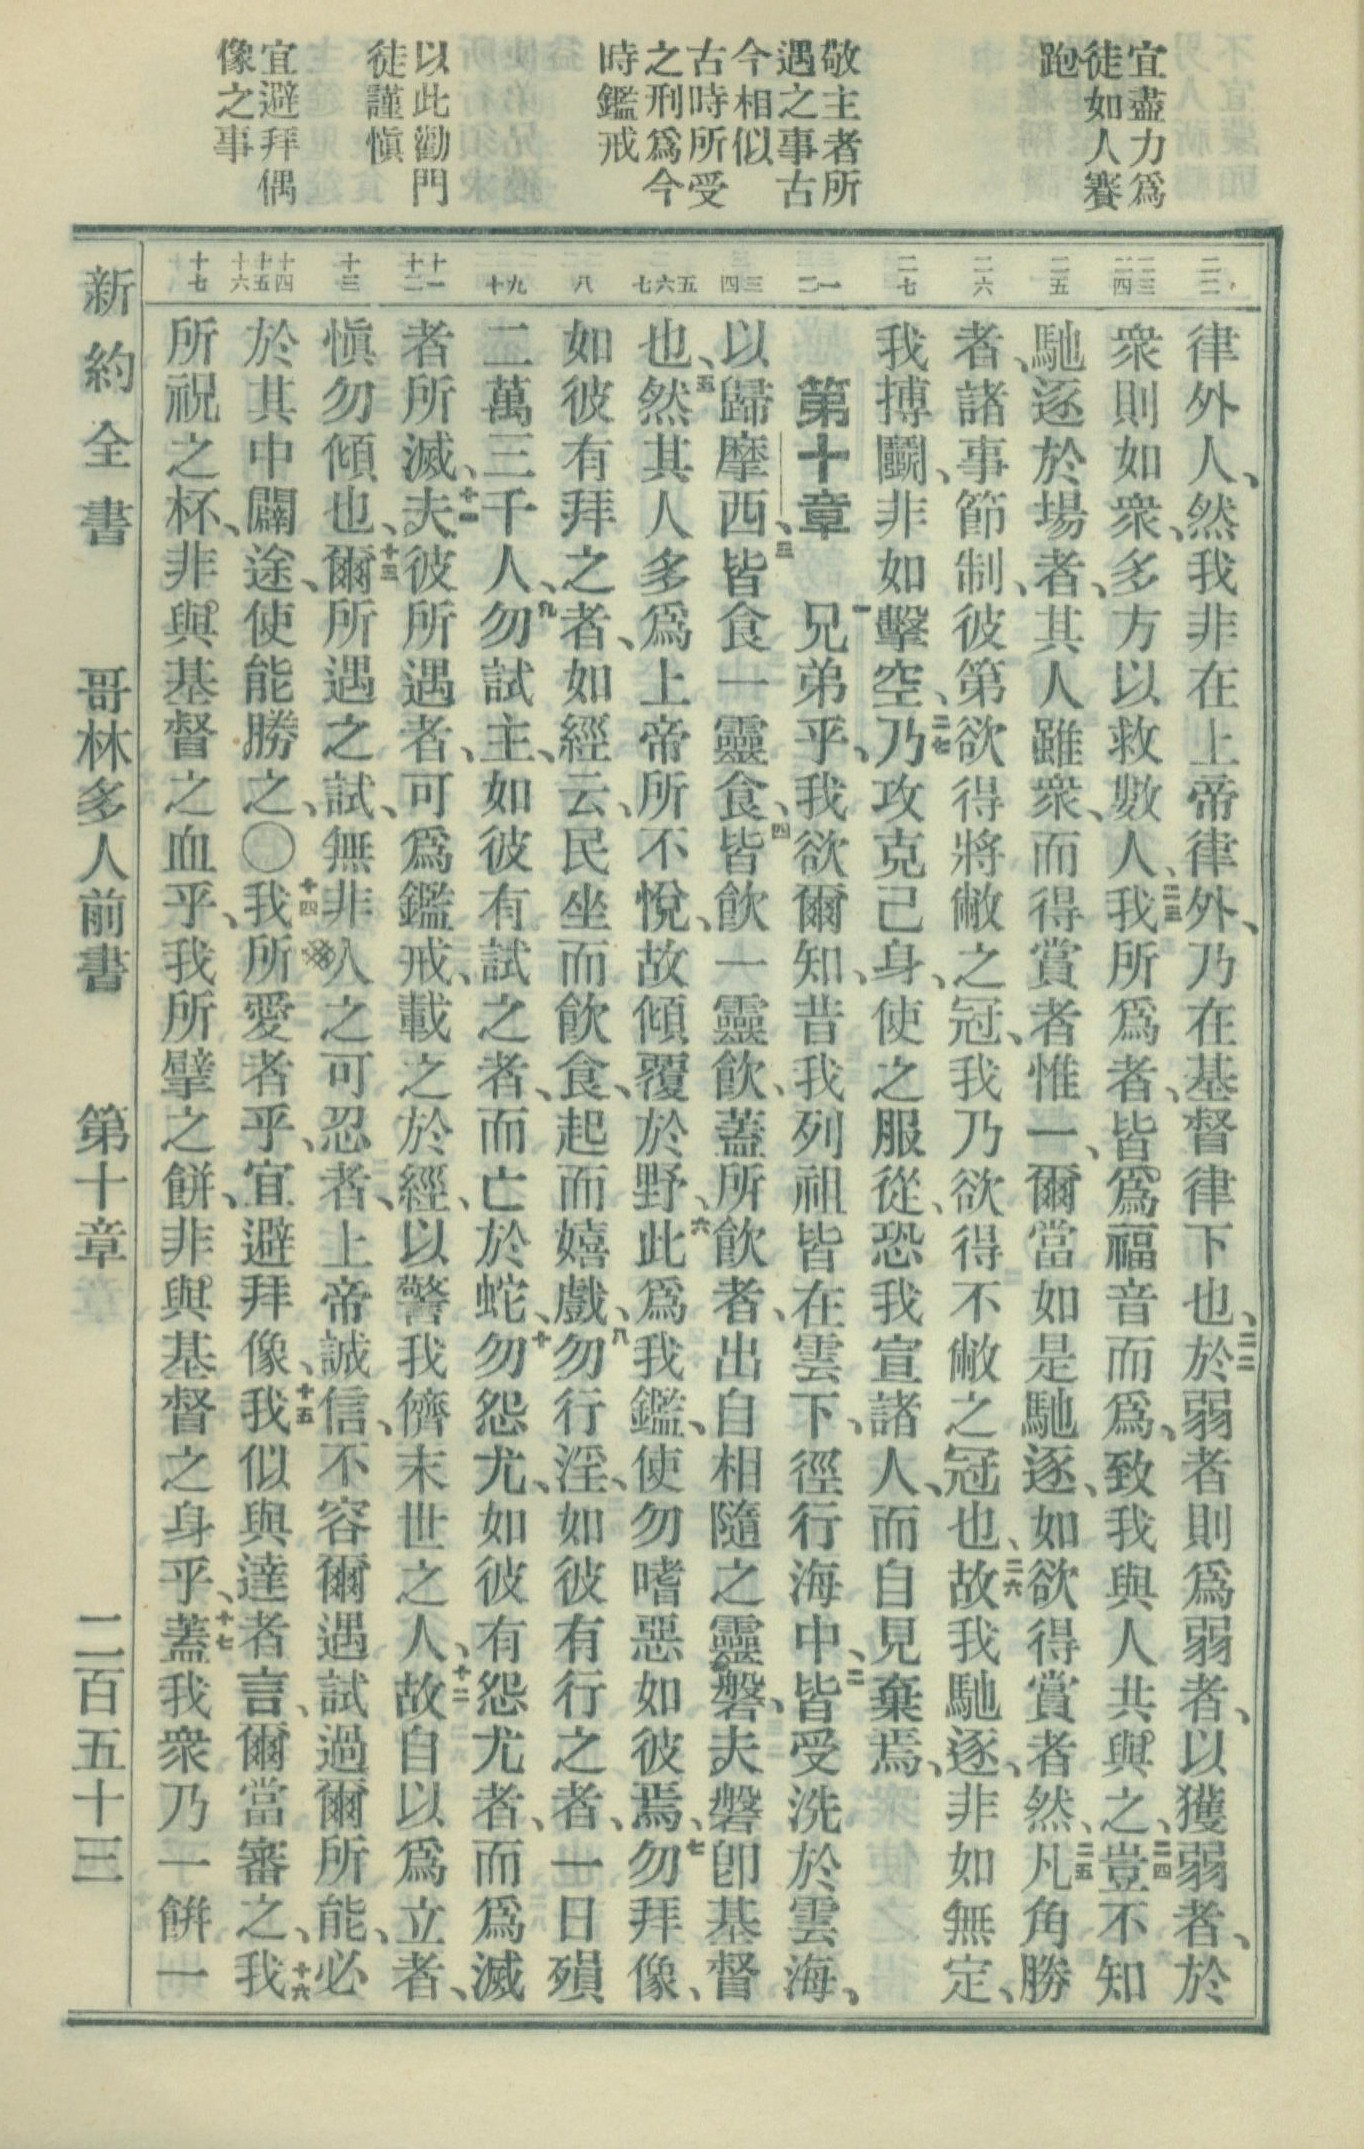 宜盡力爲
徒如人賽
跑
敬主者所
遇之事古
今相似
古時所受
之刑爲今
時鑑戒
以此勸門
徒謹愼
宜避拜偶
像之事
二二
二三
二四
二五
二六
二七
一
二
三
四
五
六
七
八
九
十
十一
十二
十三
十四
十五
十六
十七
律外人、然我非在上帝律外、乃在基督律下也、二二於弱者則爲弱者、以獲弱者、於
衆則如衆、多方以救數人、二三我所爲者、皆爲福音而爲、致我與人共與之、二四豈不知
馳逐於場者、其人雖衆、而得賞者惟一、爾當如是馳逐、如欲得賞者然、二五凡角勝
者、諸事節制、彼第欲得將敝之冠、我乃欲得不敝之冠也、二六故我馳逐、非如無定、
我搏鬭、非如擊空、二七乃攻克己身、使之服從、恐我宣諸人、而自見棄焉、
第十章 一兄弟乎、我欲爾知、昔我列祖皆在雲下、徑行海中、二皆受洗於雲海、
以歸摩西、三皆食一靈食、四皆飲一靈飲、蓋所飲者、出自相隨之靈磐、夫磐卽基督
也、五然其人多爲上帝所不悅、故傾覆於野、六此爲我鑑、使勿嗜惡如彼焉、七勿拜像、
如彼有拜之者、如經云、民坐而飲食、起而嬉戲、八勿行淫、如彼有行之者、一日殞
二萬三千人、九勿試主、如彼有試之者、而亡於蛇、十勿怨尤、如彼有怨尤者、而爲滅
者所滅、十一夫彼所遇者、可爲鑑戒、載之於經、以警我儕末世之人、十二故自以爲立者、
愼勿傾也、十三爾所遇之試、無非人之可忍者、上帝誠信、不容爾遇試過爾所能、必
於其中闢途、使能勝之、〇十四我所愛者乎、宜避拜像、十五我似與達者言、爾當審之、十六我
所祝之杯、非與基督之血乎、我所擘之餅、非與基督之身乎、十七蓋我衆乃一餅一
新約全書 哥林多人前書 第十章 二百五十三